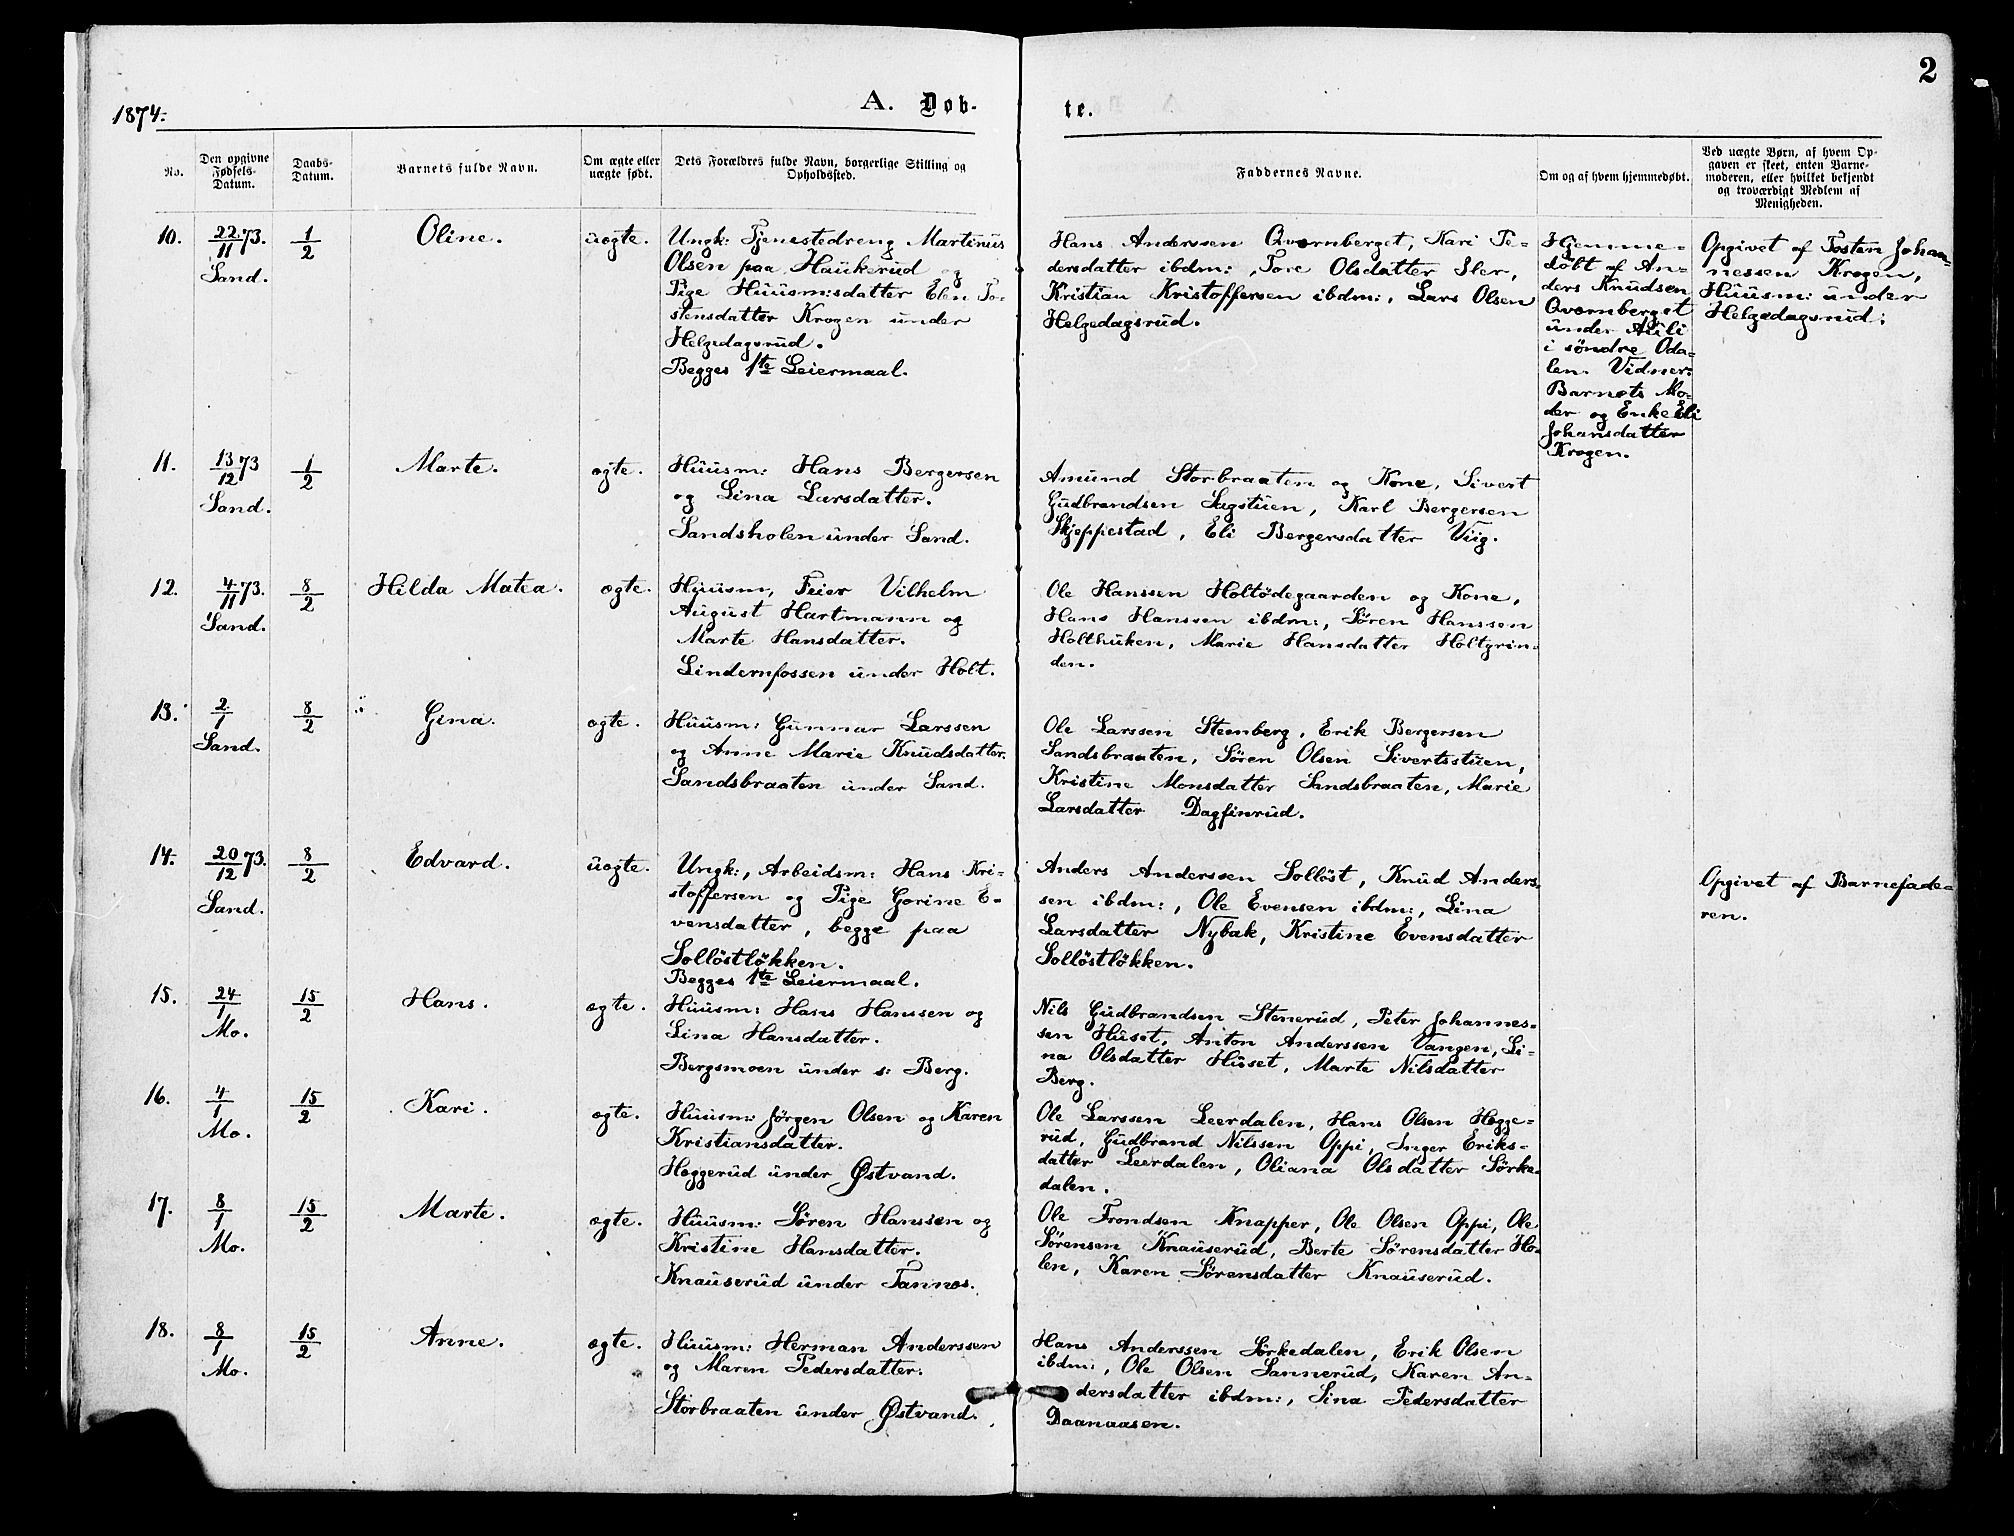 2
1874.
A. Døb-
te.
No.
Den opgivne
Fødsels-
Datum.
Daabs-
Datum.
Barnets fulde Navn.
Om ægte eller
uægte født.
Dets Forældres fulde Navn, borgerlige Stilling og
Opholdssted.
Faddernes Navne.
Om og af hvem hjemmedøbt.
Ved uægte Børn, af hvem Op-
gaven er skeet, enten Barne-
moderen, eller hvilket bekjendt
og troværdigt Medlem af
Menigheden.
10.
22/11 73.
Sand.
1/2
Oline.
uægte.
Ungk: Tjenestedreng Martinus
Olsen paa Haukerud og
Pige Huusm:sdatter Elen To-
stensdatter Krogen under
Helgedagsrud.
Begges 1te Leiermaal.
Hans Anderssen Qværnberget, Kari Pe-
dersdatter ibdm:, Tore Olsdatter Sler,
Kristian Kristoffersen ibdm:, Lars Olsen
Helgedagsrud.
Hjemme-
døbt af An-
ders Knudsen
Qværnberget
under Alili
i søndre Oda-
len. Vidner:
Barnets Mo-
der og Enke Eli
Johansdatter
Krogen.
Opgivet af Tosten Johan-
nessen Krogen,
Huusm: under
Helgedagsrud:
11.
13/12 73
Sand.
1/2
Marte.
ægte.
Huusm: Hans Bergersen
og Lina Larsdatter.
Sandsholen under Sand.
Amund Storbraaten og Kone, Sivert
Gudbrandsen Sagstuen, Karl Bergersen
Skjeppestad, Eli Bergersdatter Viig.
12.
4/11 73.
Sand.
8/2
Hilda Matea.
ægte.
Huusm, Feier Vilhelm
August Hartmann og
Marte Hansdatter.
Lindernfossen under Holt.
Ole Hanssen Holtødegaarden og Kone,
Hans Hanssen ibdm:, Søren Hanssen
Holthuken, Marie Hansdatter Holtgrin-
den.
13.
2/1
Sand.
8/2
Gina.
ægte.
Huusm: Gunnar Larssen
og Anne Marie Knudsdatter.
Sandsbraaten under Sand.
Ole Larssen Steenberg, Erik Bergersen
Sandsbraaten, Søren Olsen Sivertsstuen,
Kristine Monsdatter Sandsbraaten, Marie
Larsdatter Dagfinrud.
14.
20/12 73.
Sand.
8/2
Edvard.
uægte.
Ungk:, Arbeidsm: Hans Kri-
stoffersen og Pige Gorine E-
vensdatter, begge paa
Solløstløkken.
Begges 1te Leiermaal.
Anders Anderssen Solløst, Knud Anders-
sen ibdm:, Ole Evensen ibdm:, Lina
Larsdatter Nybak, Kristine Evensdatter
Solløstløkken.
Opgivet af Barnefade-
ren.
15.
24/1
Mo.
15/2
Hans.
ægte.
Huusm: Hans Hanssen og
Lina Hansdatter.
Bergsmoen under s: Berg.
Nils Gudbrandsen Stenerud, Peter Johannes-
sen Huset, Anton Anderssen Vangen, Li-
na Olsdatter Huset, Marte Nilsdatter
Berg.
16.
4/1
Mo.
15/2
Kari.
ægte.
Huusm: Jørgen Olsen og Karen
Kristiansdatter.
Hæggerud under Østvand.
Ole Larssen Leerdalen, Hans Olsen Hægge-
rud, Gudbrand Nilssen Oppi, Inger Eriks-
datter Leerdalen, Oliana Olsdatter Sørke-
dalen.
17.
8/1
Mo.
15/2
Marte.
ægte.
Huusm: Søren Hanssen og
Kristine Hansdatter.
Knauserud under Tannæs.
Ole Trondsen Knapper, Ole Olsen Oppi, Ole
Sørensen Knauserud, Berte Sørensdatter Ho-
len, Karen Sørensdatter Knauserud.
18.
8/1
Mo.
15/2
Anne.
ægte.
Huusm: Herman Anderssen
og Maren Pedersdatter.
Storbraaten under Østvand.
Hans Anderssen Sørkedalen, Erik Olsen
ibdm:, Ole Olsen Sannerud, Karen An-
dersdatter ibdm:, Lina Pedersdatter
Daanaasen.